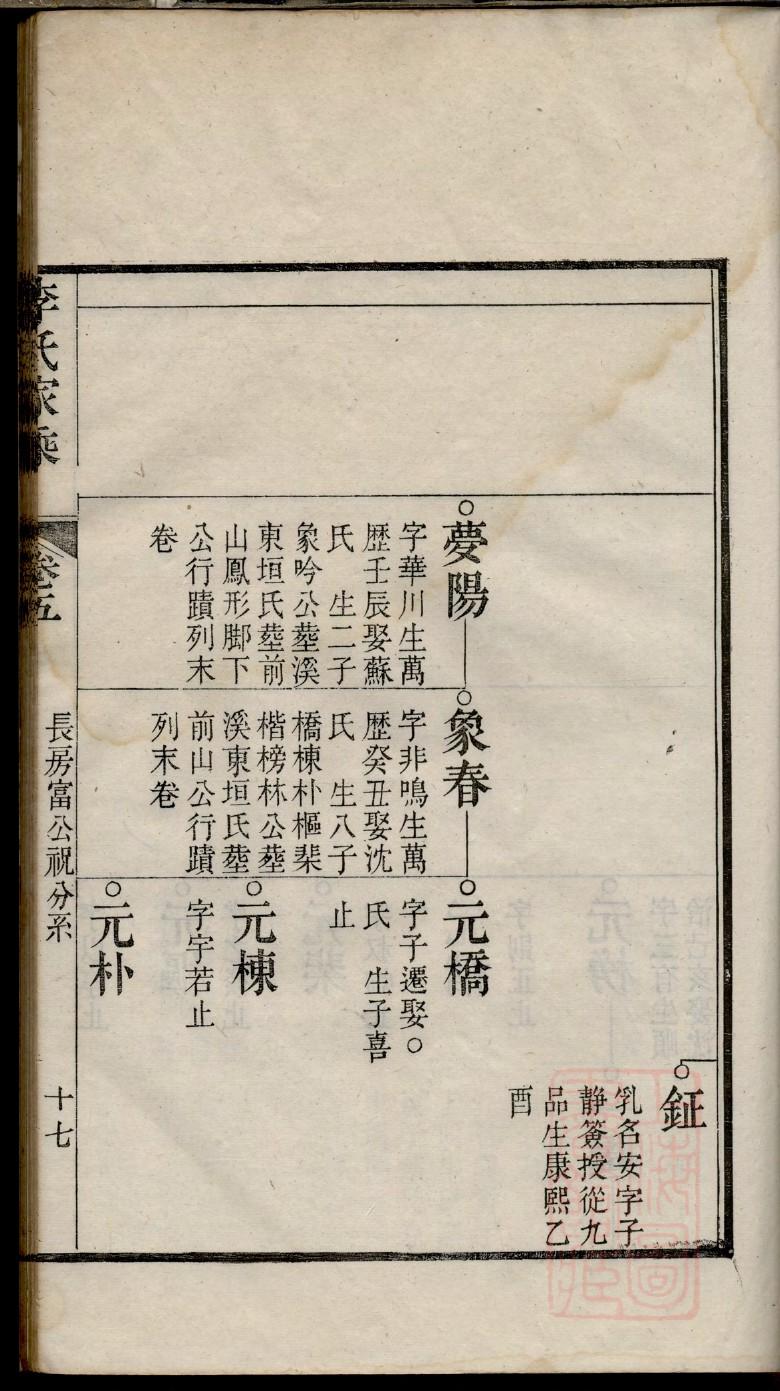 鉦
乳名安字子
靜簽授從九
品生康熙乙
酉
夢陽
字華川生萬
歷壬辰娶蘇
氏 生二子
象吟公塟溪
東垣氏塟前
山鳳形脚下
公行蹟列末
卷
象春
字非鳴生萬
歷癸丑娶沈
氏 生八子
橋棟朴樞棐
楷榜林公塟
溪東垣氏塟
前山公行蹟
列末卷
元橋
字子遷娶○
氏 生子喜
止
元棟
字宇若止
元朴
李氏家乘
卷五
長房富公祝分系
十七